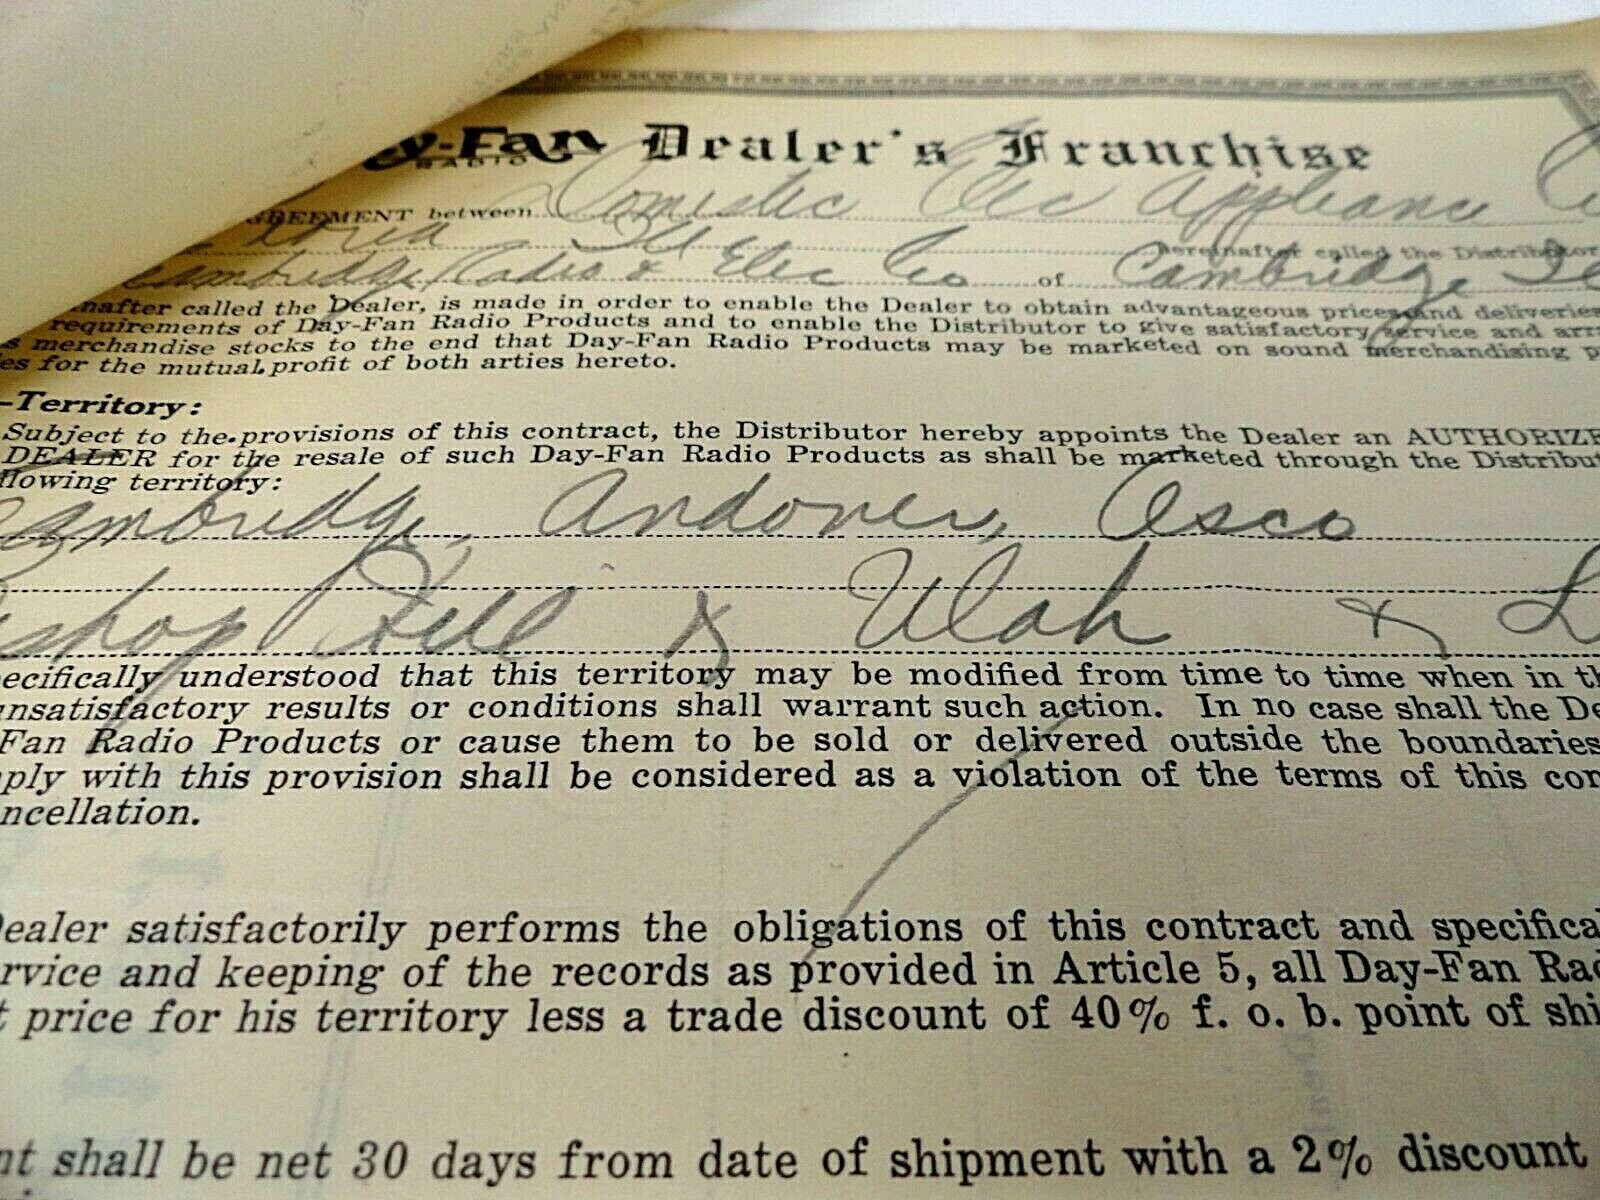 y-Fan Dealer's Franchise
RADIO
GREEMENT between Domestic Elec Appliance
hereinafter called the Distributor
Cambridge Radio & Elec Co of Cambridge Ill
inafter called the Dealer, is made in order to enable the Dealer to obtain advantageous prices and deliveries
requirements of Day-Fan Radio Products and to enable the Distributor to give satisfactory service and arr
s merchandise stocks to the end that Day-Fan Radio Products may be marketed on sound merchandising p
es for the mutual profit of both arties hereto.
—Territory:
Subject to the provisions of this contract, the Distributor hereby appoints the Dealer an AUTHORIZE
DEALER for the resale of such Day-Fan Radio Products as shall be marketed through the Distribut
llowing territory:
Cambridge, Andover, Osco
Bishop Hill & Ulah & L
ecifically understood that this territory may be modified from time to time when in th
unsatisfactory results or conditions shall warrant such action. In no case shall the De
Fan Radio Products or cause them to be sold or delivered outside the boundaries
ply with this provision shall be considered as a violation of the terms of this con
ncellation.
Dealer satisfactorily performs the obligations of this contract and specifical
rvice and keeping of the records as provided in Article 5, all Day-Fan Rad
t price for his territory less a trade discount of 40% f. o. b. point of shi
nt shall be net 30 days from date of shipment with a 2% discount